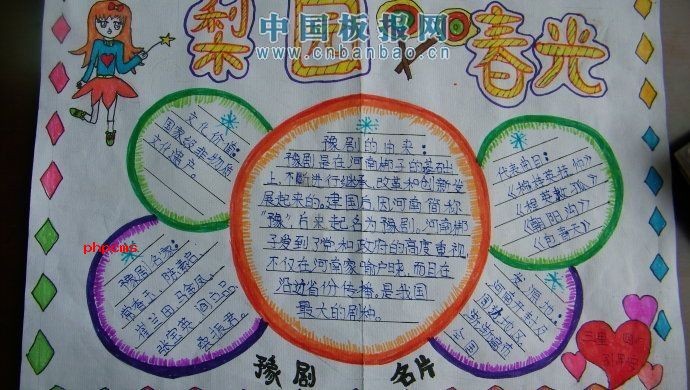 梨园春光
中国板报网
www.cnbanbao.cn
文化价值:
国家级非物质
文化遗产。
豫剧的由来:
豫剧是在河南梆子的基础
上,不断进行继承、改革和创新发
展起来的。建国后因河南简称
"豫"
豫剧。河南梆
子受到了党和政府的高度重视,
不仅在河南家喻户晓,而且在
沿边省份传播,是我国
最大的剧种。
代表曲目:
《穆桂英挂帅》
《朝阳沟》
《包青天》
phpcms
豫剧名家:
常香玉、陈素真、
崔兰田、马金凤、
张宝英
发源地:
河南开封及
周边地区
全国
三里
豫剧 名片